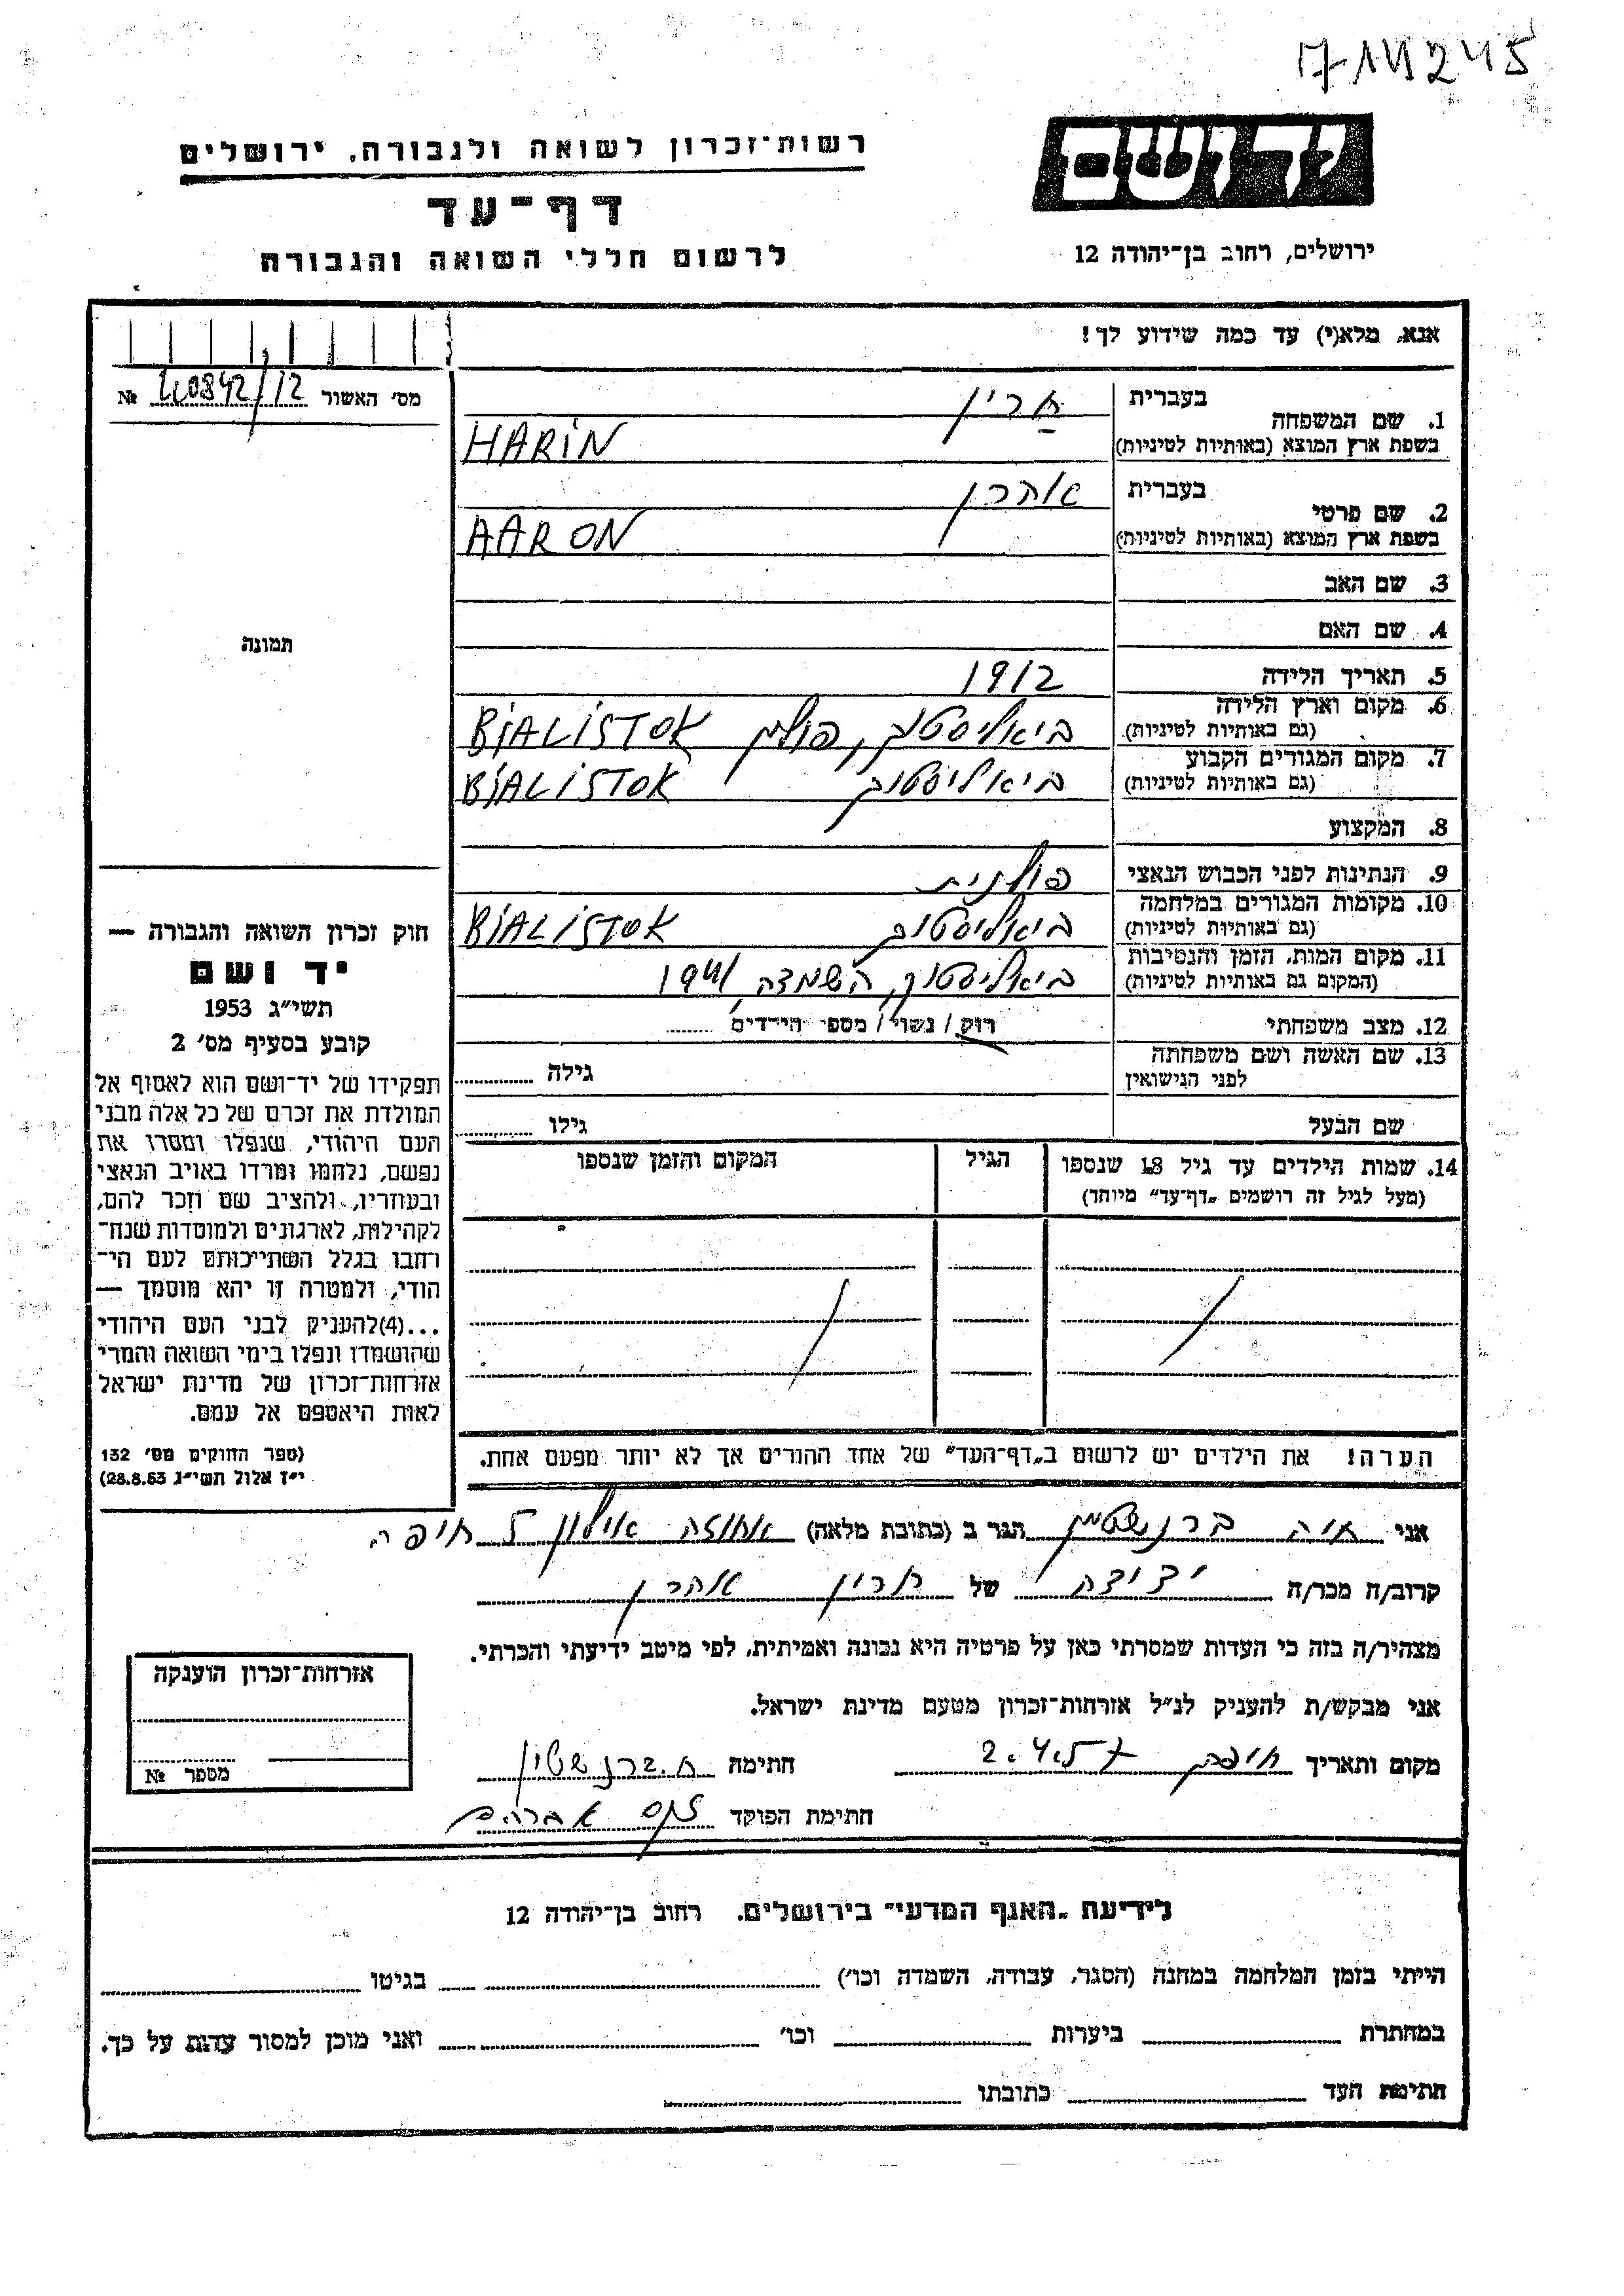 ח 111245
רשות־זכרון לשואה ולגבורה, ירושלים
דף־עד
לרשום חללי השואה והגבורה
יד ושם
ירושלים, רחוב בן־יהודה 12
אנא, מלא(י) עד כמה שידוע לך!
מס׳ האשור № 40842/12
תמונה
1. שם המשפחה
בעברית חרין
בשפת ארץ המוצא (באותיות לטיניות) HARIN
2. שם פרטי
בעברית אהרן
בשפת ארץ המוצא (באותיות לטיניות) AARON
3. שם האב
4. שם האם
5. תאריך הלידה 1912
6. מקום וארץ הלידה ביאליסטוק, פולין BJALISTOK
(גם באותיות לטיניות)
7. מקום המגורים הקבוע ביאליסטוק BJALISTOK
(גם באותיות לטיניות)
8. המקצוע
9. הנתינות לפני הכבוש הנאצי פולנית
10. מקומות המגורים במלחמה ביאליסטוק BJALISTOK
(גם באותיות לטיניות)
11. מקום המות, הזמן והנסיבות ביאליסטוק, השמדה, 1941
(המקום גם באותיות לטיניות)
12. מצב משפחתי רוק / נשוי / מספר הילדים
13. שם האשה ושם משפחתה גילה
לפני הנישואין
שם הבעל גילו
14. שמות הילדים עד גיל 18 שנספו הגיל המקום והזמן שנספו
(מעל לגיל זה רושמים „דף־עד״ מיוחד)
הערה! את הילדים יש לרשום ב„דף־העד״ של אחד ההורים אך לא יותר מפעם אחת.
חוק זכרון השואה והגבורה —
יד ושם
תשי״ג 1953
קובע בסעיף מס׳ 2
תפקידו של יד־ושם הוא לאסוף אל
המולדת את זכרם של כל אלה מבני
העם היהודי, שנפלו ומסרו את
נפשם, נלחמו ומרדו באויב הנאצי
ובעוזריו, ולהציב שם וזכר להם,
לקהילות, לארגונים ולמוסדות שנח־
רבו בגלל השתייכותם לעם הי־
הודי, ולמטרה זו יהא מוסמך —
...(4)להעניק לבני העם היהודי
שהושמדו ונפלו בימי השואה והמרי
אזרחות־זכרון של מדינת ישראל
לאות היאספם אל עמם.
(ספר החוקים מס׳ 132
י״ז אלול תשי״ג 28.8.53)
אני חיה ברנשטין הגר ב (כתובת מלאה) אחוזה אילון 5 חיפה
קרוב/ה מכר/ה ידידה של חרין אהרן
מצהיר/ה בזה כי העדות שמסרתי כאן על פרטיה היא נכונה ואמיתית, לפי מיטב ידיעתי והכרתי.
אני מבקש/ת להעניק לנ״ל אזרחות־זכרון מטעם מדינת ישראל.
מקום ותאריך חיפה 2.4.57 חתימה ח. ברנשטין
חתימת הפוקד אברהם
אזרחות־זכרון הוענקה
מספר №
לידיעת „האגף המדעי״ בירושלים, רחוב בן־יהודה 12
הייתי בזמן המלחמה במחנה (הסגר, עבודה, השמדה וכו׳) בגיטו
במחתרת ביערות וכו׳ ואני מוכן למסור עדות על כך.
חתימת העד כתובתו